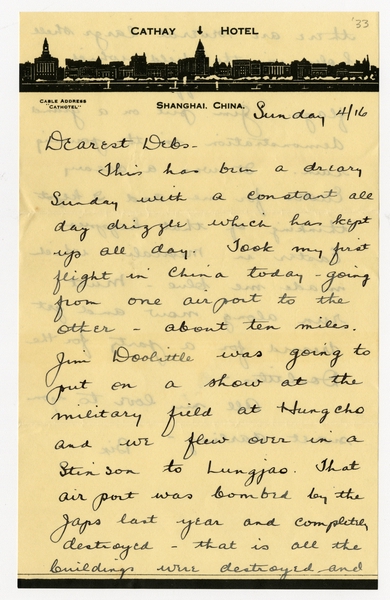 '33
CATHAY HOTEL
CABLE ADDRESS
"CATHOTEL"
SHANGHAI, CHINA.
Sunday 4/16
Dearest Debs-
This has been a dreary
Sunday with a constant all
day drizzle which has kept
up all day. Took my first
flight in China today - going
from one air port to the
other - about ten miles.
Jim Doolittle was going to
put on a show at the
military field at Hungcho
and we flew over in a
Stinson to Lungjao. That
air port was bombed by the
Japs last year and completely
destroyed - that is all the
buildings were destroyed and